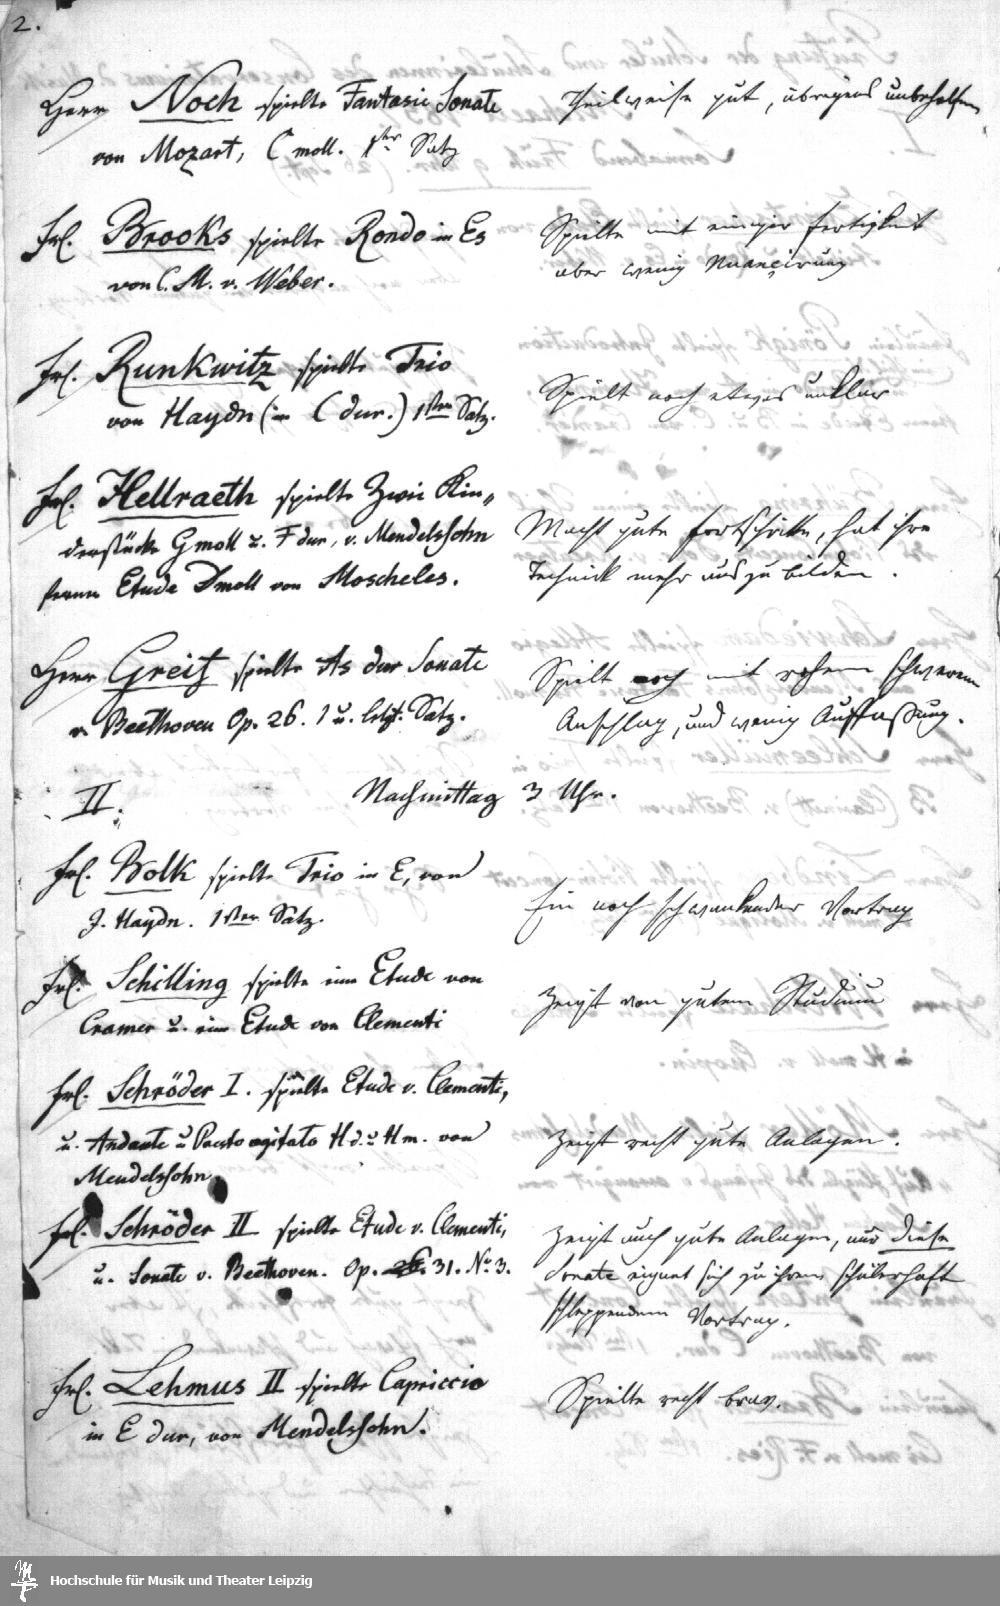 2.
Herr Noch spielte Fantasie Sonate
von Mozart, C moll. 1ster Satz
Theilweise gut, übrigens unbeholfen
Frl. Brooks spielte Rondo in Es
von C. M. v. Weber.
Spielte mit einiger Fertigkeit
aber wenig Nuancirung
Frl. Runkwitz spielte Trio
von Haydn (in C dur.) 1ster Satz.
Spielt noch etwas unklar
Frl. Hellraeth spielte Zwei Kin„
derstücke G moll u. F dur, v. Mendelssohn
ferner Etude D moll von Moscheles.
Macht gute Fortschritte, hat ihre
Technick mehr auszubilden.
Herr Greif spielte As dur Sonate
v. Beethoven Op. 26. 1 u. letzt. Satz.
Spielt noch mit rohem schwerem
Anschlag, und wenig Auffassung.
II. Nachmittag 3 Uhr.
Frl. Bolk spielte Trio in E, von
J. Haydn. 1ster Satz.
Ein noch schwankender Vortrag
Frl. Schilling spielte eine Etude von
Cramer u. eine Etude von Clementi
Zeigt von gutem Studium
Frl. Schröder I. spielte Etude v. Clementi,
u. Andante u Presto agitato H d. u H m. von
Mendelssohn
Zeigt recht gute Anlagen.
Frl. Schröder II spielte Etude v. Clementi,
u. Sonate v. Beethoven. Op. 31. No. 3.
Zeigt auch gute Anlagen, nur diese
Sonate eignet sich zu ihrem schülerhaft
schleppendem Vortrag.
Frl. Lehmus II spielte Capriccio
in E dur, von Mendelssohn.
Spielte recht brav.
Hochschule für Musik und Theater Leipzig